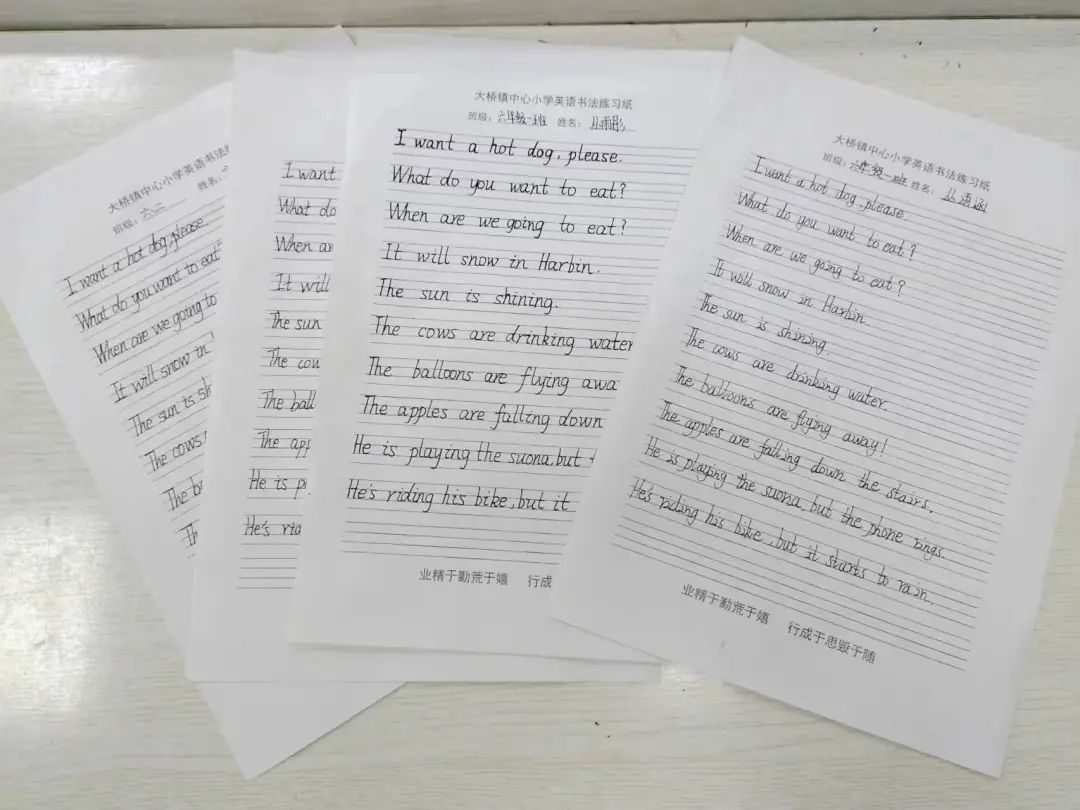 大桥镇中心小学英语书法练习
姓名:
班级: 六二
I want a hot dog, please
What do you want to eat
When are we going to
It will snow in
The sun is sh
The cows
The b
Th
I want
What do
When ar
It will
The sun
The cou
The ball
The app
He is p
He's rid
大桥镇中心小学英语书法练习纸
班级: 六年级一班 姓名: 丛雨彤
I want a hot dog, please.
What do you want to eat?
When are we going to eat?
It will snow in Harbin.
The sun is shining.
The cows are drinking water
The balloons are flying awa
The apples are falling down
He is playing the suona, but
He's riding his bike, but it
业精于勤荒于嬉 行成
大桥镇中心小学英语书法练习纸
班级: 六年级一班 姓名: 丛语涵
I want a hot dog, please
What do you want to eat?
When are we going to eat?
It will snow in Harbin
The sun is shining.
The cows are drinking water.
The balloons are flying away!
The apples are falling down the stairs.
He is playing the suona, but the phone rings.
He's riding his bike, but it starts to rain.
业精于勤荒于嬉 行成于思毁于随